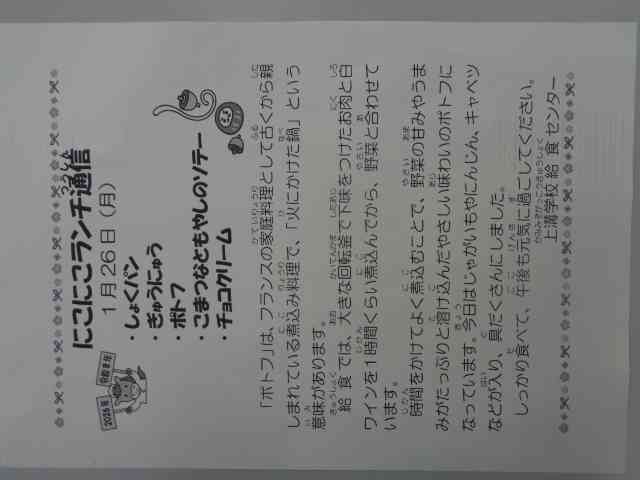 にこにこランチ通信
つうしん
1月26日(月)
2026年
令和8年
・しょくパン
・ぎゅうにゅう
・ポトフ
・こまつなともやしのソテー
・チョコクリーム
「ポトフ」は、フランスの家庭料理として古くから親
しまれている煮込み料理で、「火にかけた鍋」という
意味があります。
給食では、大きな回転釜で下味をつけたお肉と白
ワインを1時間くらい煮込んでから、野菜と合わせて
います。
時間をかけてよく煮込むことで、野菜の甘みやうま
みがたっぷりと溶け込んだやさしい味わいのポトフに
なっています。今日はじゃがいもやにんじん、キャベツ
などが入り、具だくさんにしました。
しっかり食べて、午後も元気に過ごしてください。
上溝学校給食センター